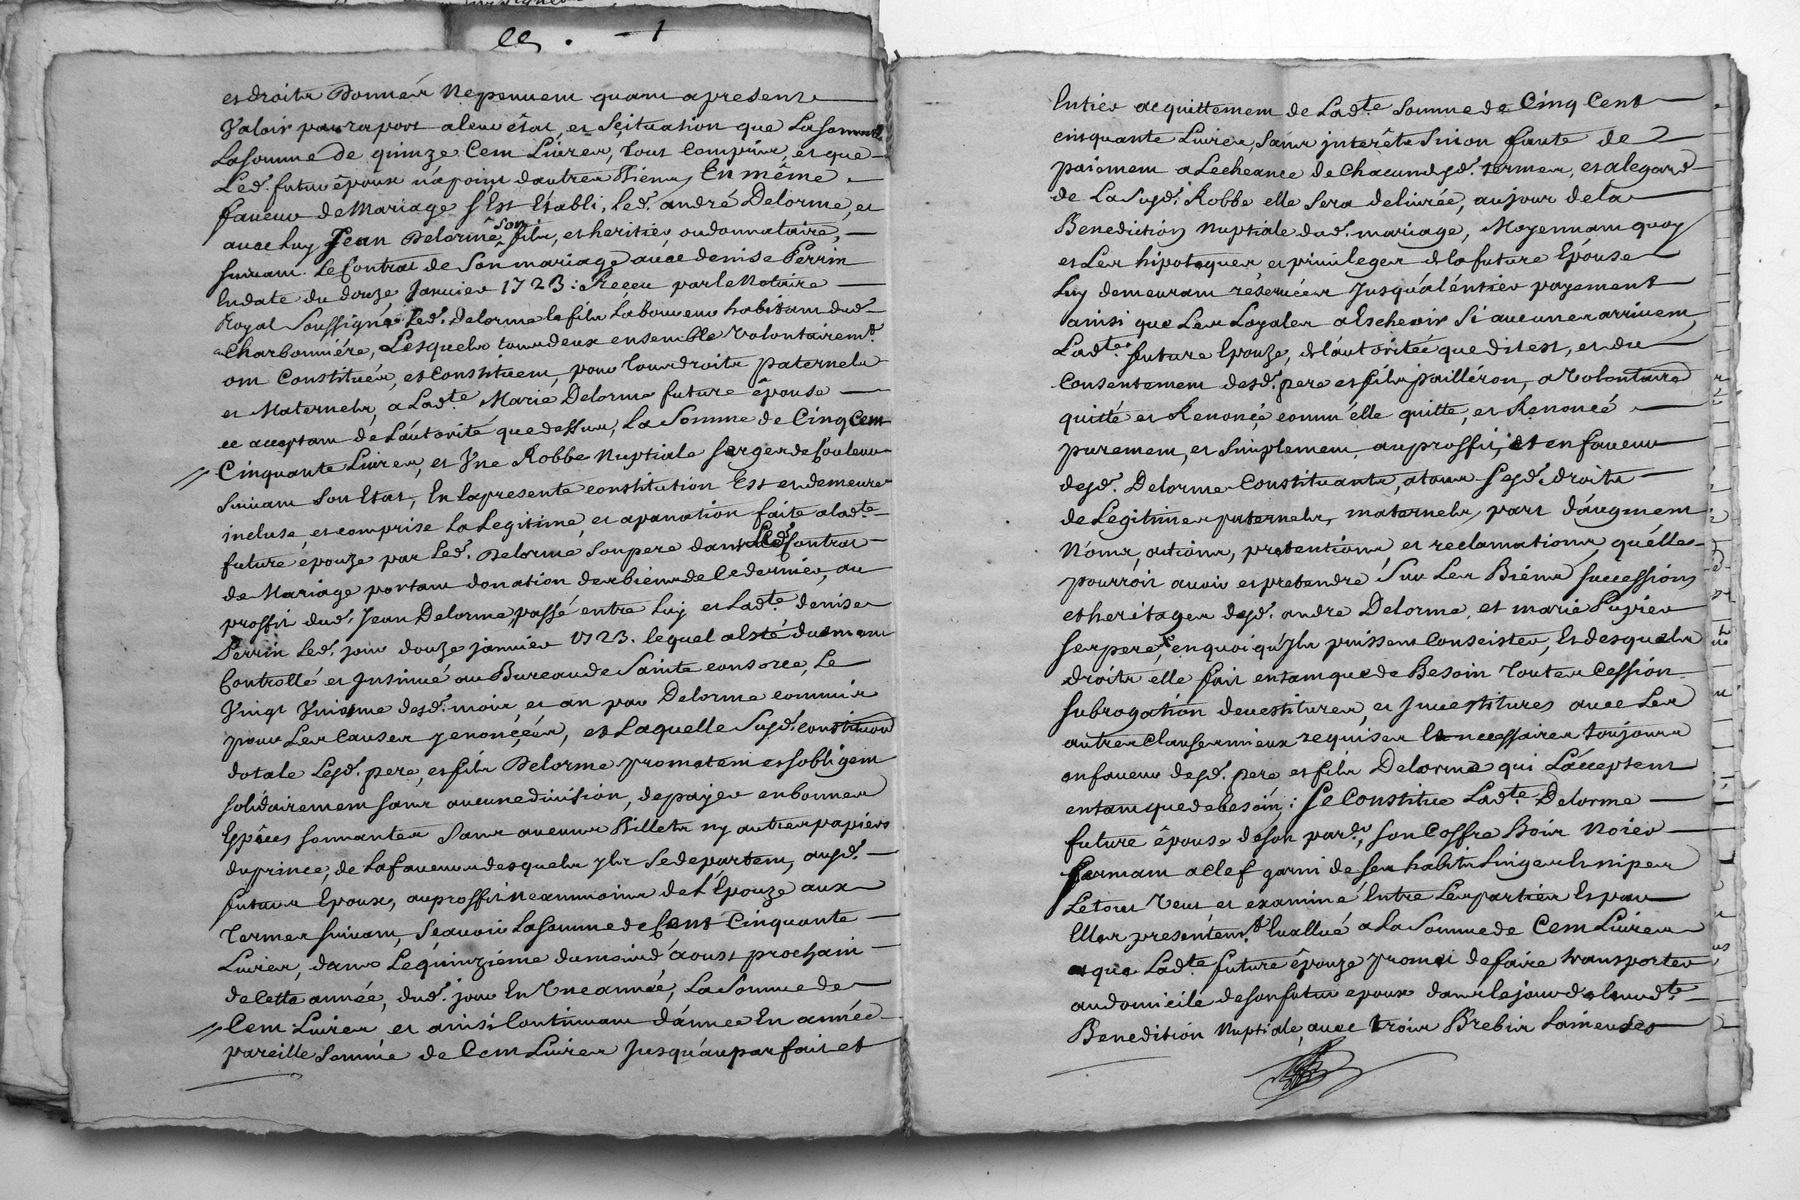 et droits Donnés Ne peuvent quant a present
Valoir par raport a leur êtat, et Scituation que La somme
La somme de quinze Cent Livres, tout Compris, et que
Led. futur époux n'a point d'autres Biens, En même
faveur de Mariage S'Est Etabli, led. andré Delorme, et
avec luy Jean Delorme son fils, et heritier ou donnataire,
suivant Le Contrat de Son mariage avec denise Perrin
En date du douze Janvier 1723: Receu par le Notaire
Royal Soussigné Led. Delorme le fils Laboureur habitant dud.
Charbonniére, Lesquels tous deux ensemble Volontairemt.
ont Constitués, et Constituent, pour tous droits paternels
et Maternels, a Ladte. Marie Delorme future épouse
ce acceptant de L'autorité que dessus, La Somme de Cinq Cent
Cinquante Livres, et Vne Robbe Nuptiale serge de Couleur
suivant Son Etat, En la presente constitution Est et demeure
incluse, et comprise La Legitime, et apanation faite a ladte.
future épouze par Led. Delorme, Son pere dans Led. Contrat
de Mariage portant donation des biens de Ce dernier, au
proffit dud. Jean Delorme, passé entre Luy et Ladte. denise
Perrin Led. jour douze janvier 1723. lequel a Esté duement
Controllé et Jnsinué au Bureau de Sainte consorce, Le
Vingt Vnieme desd. mois, et an par Delorme commis
pour Les Causes y enoncées, et Laquelle Susd. constitution
dotale Lesd. pere, et fils Delorme promettent et s'obligent
solidairement sans aucune division, de payer en bonnes
Espêces sonnantes Sans aucuns Billets ny autres papiers
du prince, de La faveur desquels yls Se departent, ausd.
futurs Epoux, au proffit neanmoins de L'Epouze aux
Termes suivans, Scavoir La somme de Cent Cinquante
Livres, dans Le quinziéme du mois d'aoust prochain
de Cette année, dud. jour En Vne année, La Somme de
Cent Livres et ainsi Continuant d'année En année
pareille Somme de Cent Livres Jusqu'au parfait et
Entier acquittement de Ladte. Somme de Cinq Cent
cinquante Livres, Sans jnterêts Sinon faute de
paiement a Lecheance de Chacun desd. termes, et a legard
de La Susd. Robbe elle Sera delivrée, au jour de la
Benediction Nuptiale dud. mariage, Moyennant quoy
et Les hipoteques, et privileges de la future Epouse
Luy demeurant reservées Jusqu'al'éntier payement
ainsi que Les Loyales a Escheoir Si aucunes arrivent,
Ladte. future Epouze, de l'autoritée que dit est, et du
Consentement desd. pere et fils pailléron, a Volontaire
quitté et Renoncé comm'elle quitte, et Renoncé
purement, et Simplement au proffit, et en faveur
desd. Delorme Constituants, a tous Sesd. droits
de Legitimes paternels, maternels, part d'augment
Noms, actions, pretentions et reclamations qu'elles
pourroit avoir et pretendre Sur Les Biéns Successions
et heritages desd. andre Delorme, et marie Pupier
ses pere, en quoi qu'yls puissent Conseister, Et desquels
droits elle fait entant que de Besoin toutes Cession
subrogation devestitures, et Jnvestitures avec Les
autres Clauses mieux requises Et necessaires toujours
en faveur desd. pere et fils Delorme qui L'acceptent
entant que de besoin; Se Constitue Ladte. Delorme
future épouse de son par.er, son Coffre Bois Noier
fermant a Clef garni de Ses habits Linges Et nipes
Le tout Veu et examiné Entre Les parties Et par
Elles presentemt. Evallué a La Somme de Cent Livres
et que Ladte. future épouze promet de faire transporter
au domicile de Son futur epoux dans le jour de leurdte.
Benedition Nuptiale, avec trois Brebis Laineuses